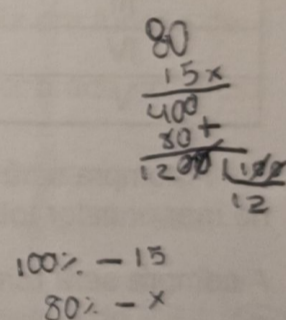 80
15x
400
80+
1200 100
12
100% - 15
80% - x